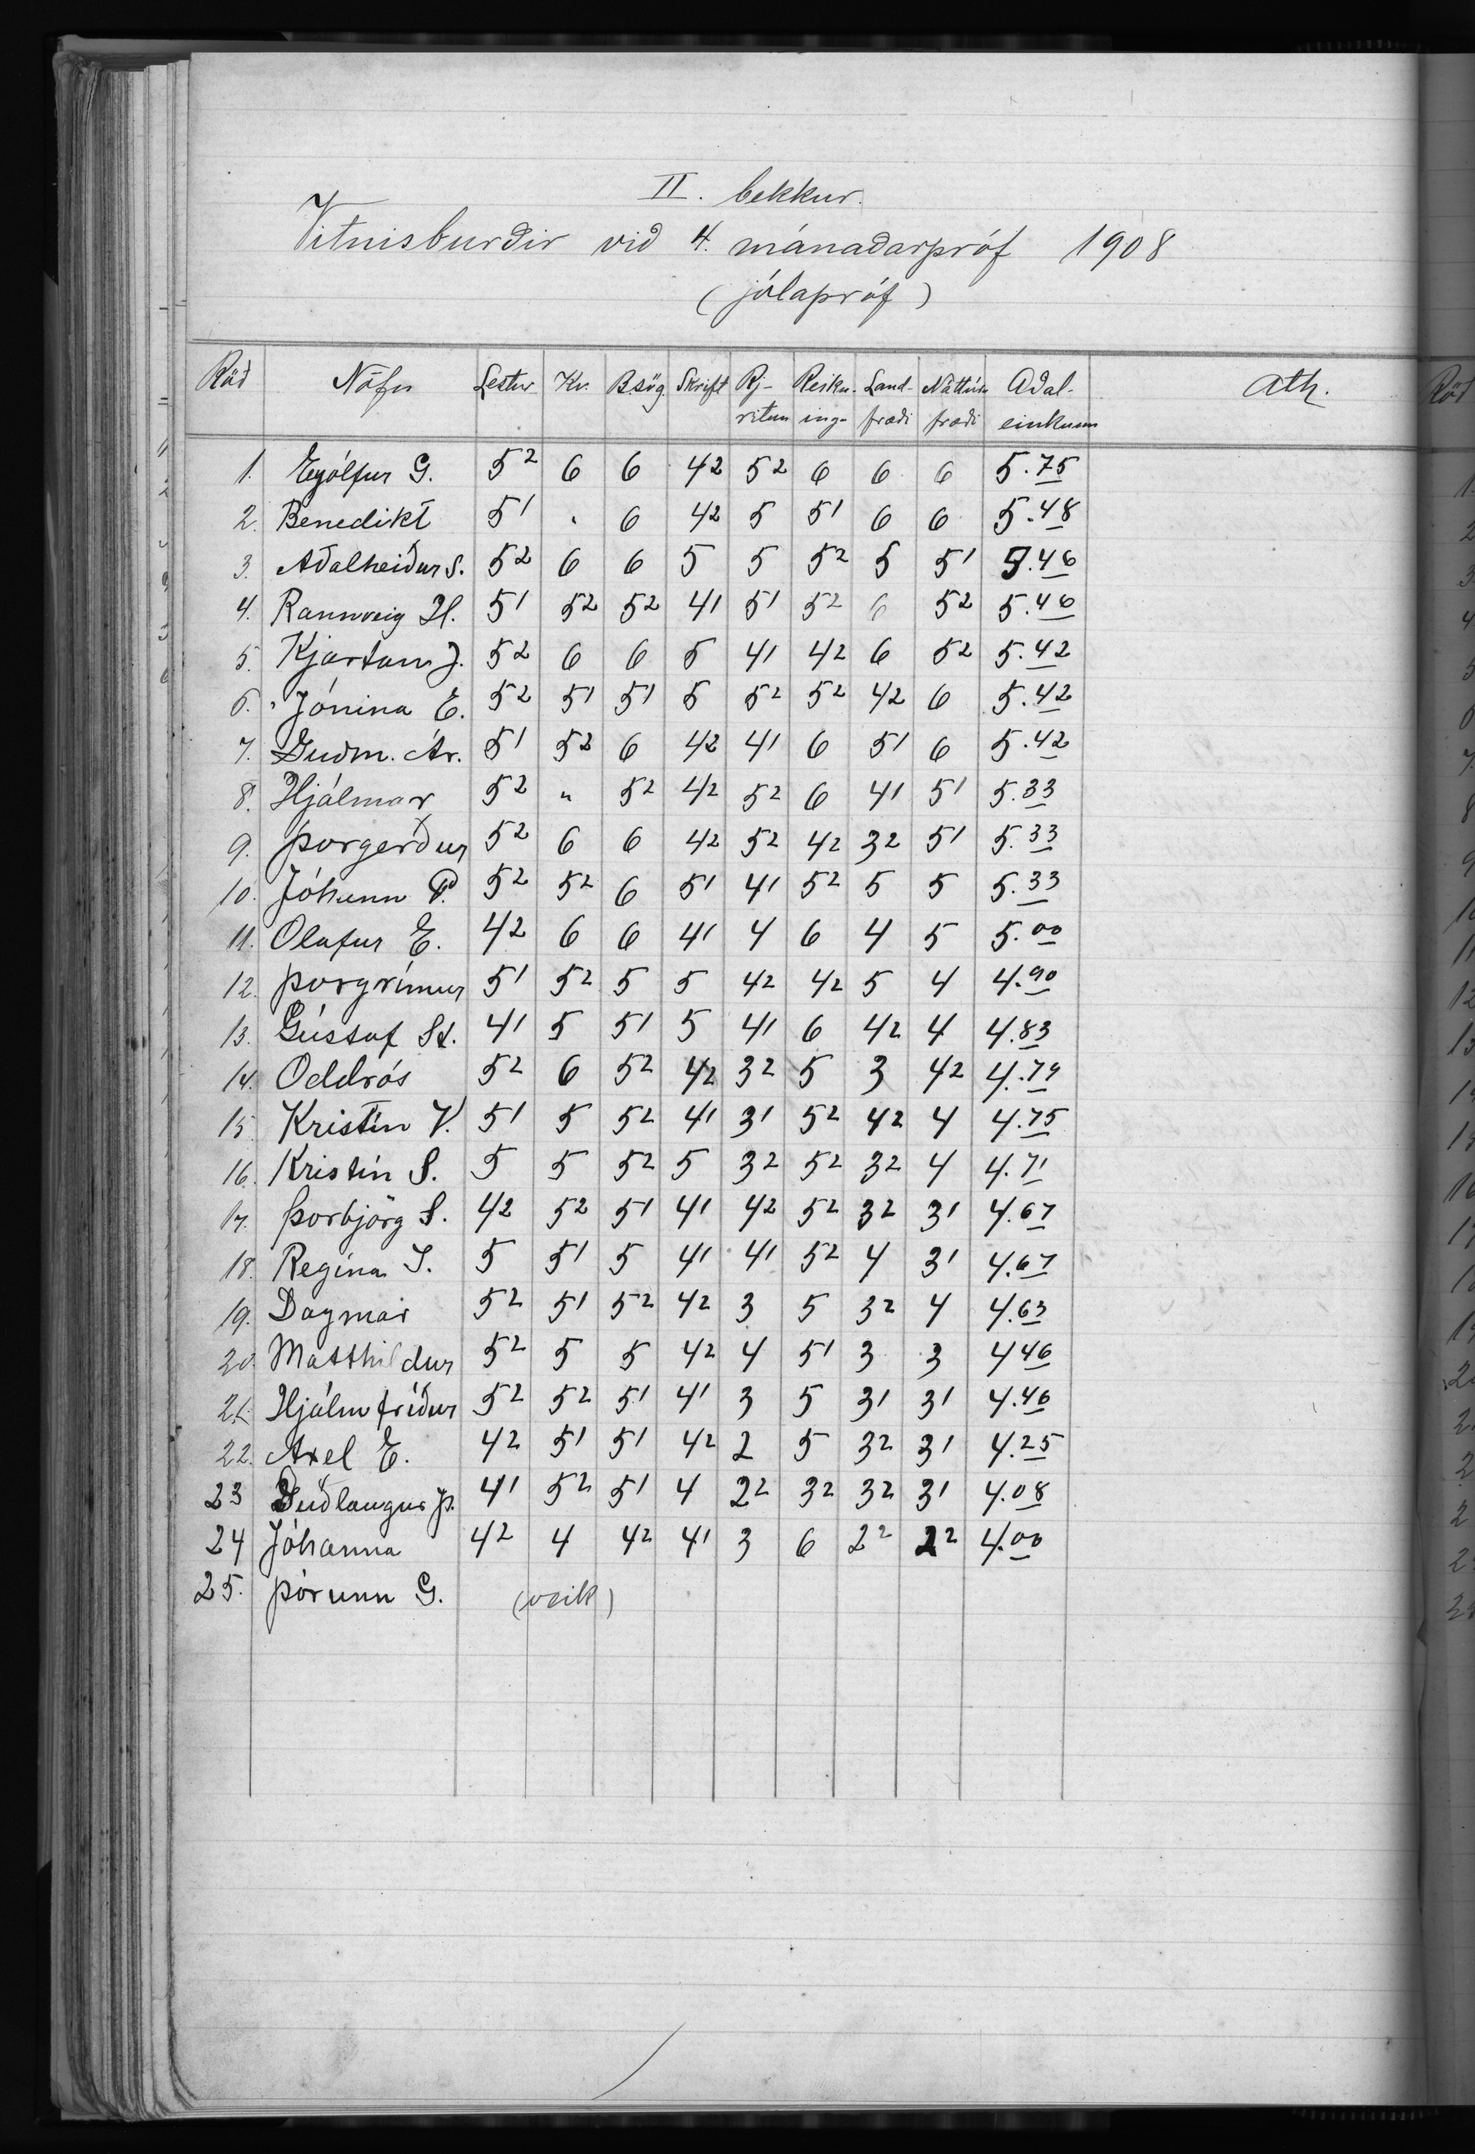 II. bekkur.
Vitnisburðir við 4. mánaðarpróf 1908
(jólapróf)
Röð Nöfn Lestur Kv. B.sög. Skrift Rj-ritun Reikn-ing- Land-fræði Náttúru fræði Aðal-einkunn Ath.
1. Eyjólfur G. 5² 6 6 4² 5² 6 6 6 5.75
2. Benedikt 5¹ . 6 4² 5 5¹ 6 6 5.48
3. Aðalheiður S. 5² 6 6 5 5 5² 5 5¹ 5.46
4. Rannveig H. 5¹ 5² 5² 4¹ 5¹ 5² 6 5² 5.46
5. Kjartan J. 5² 6 6 5 4¹ 4² 6 5² 5.42
6. Jónína E. 5² 5¹ 5¹ 5 5² 5² 4² 6 5.42
7. Guðm. Ár. 5¹ 5² 6 4² 4¹ 6 5¹ 6 5.42
8. Hjálmar 5² " 5² 4² 5² 6 4¹ 5¹ 5.33
9. Þorgerður 5² 6 6 4² 5² 4² 3² 5¹ 5.33
10. Jóhann P. 5² 5² 6 5¹ 4¹ 5² 5 5 5.33
11. Olafur E. 4² 6 6 4¹ 4 6 4 5 5.00
12. Þorgrímur 5¹ 5² 5 5 4² 4² 5 4 4.90
13. Gústaf St. 4¹ 5 5¹ 5 4¹ 6 4² 4 4.83
14. Oddrós 5² 6 5² 4² 3² 5 3 4² 4.79
15. Kristín V. 5¹ 5 5² 4¹ 3¹ 5² 4² 4 4.75
16. Kristín S. 5 5 5² 5 3² 5² 3² 4 4.71
17. Þorbjörg S. 4² 5² 5¹ 4¹ 4² 5² 3² 3¹ 4.67
18. Regína I. 5 5¹ 5 4¹ 4¹ 5² 4 3¹ 4.67
19. Dagmar 5² 5¹ 5² 4² 3 5 3² 4 4.63
20. Matthildur 5² 5 5 4² 4 5¹ 3 3 4 46
21. Hjálmfríður 5² 5² 5¹ 4¹ 3 5 3¹ 3¹ 4.46
22. Axel E. 4² 5¹ 5¹ 4² 2 5 3² 3¹ 4.25
23 Guðlaugur Þ. 4¹ 5² 5¹ 4 2² 3² 3² 3¹ 4.08
24 Jóhanna 4² 4 4² 4¹ 3 6 2² 2² 4.00
25. Þórunn G. (veik)